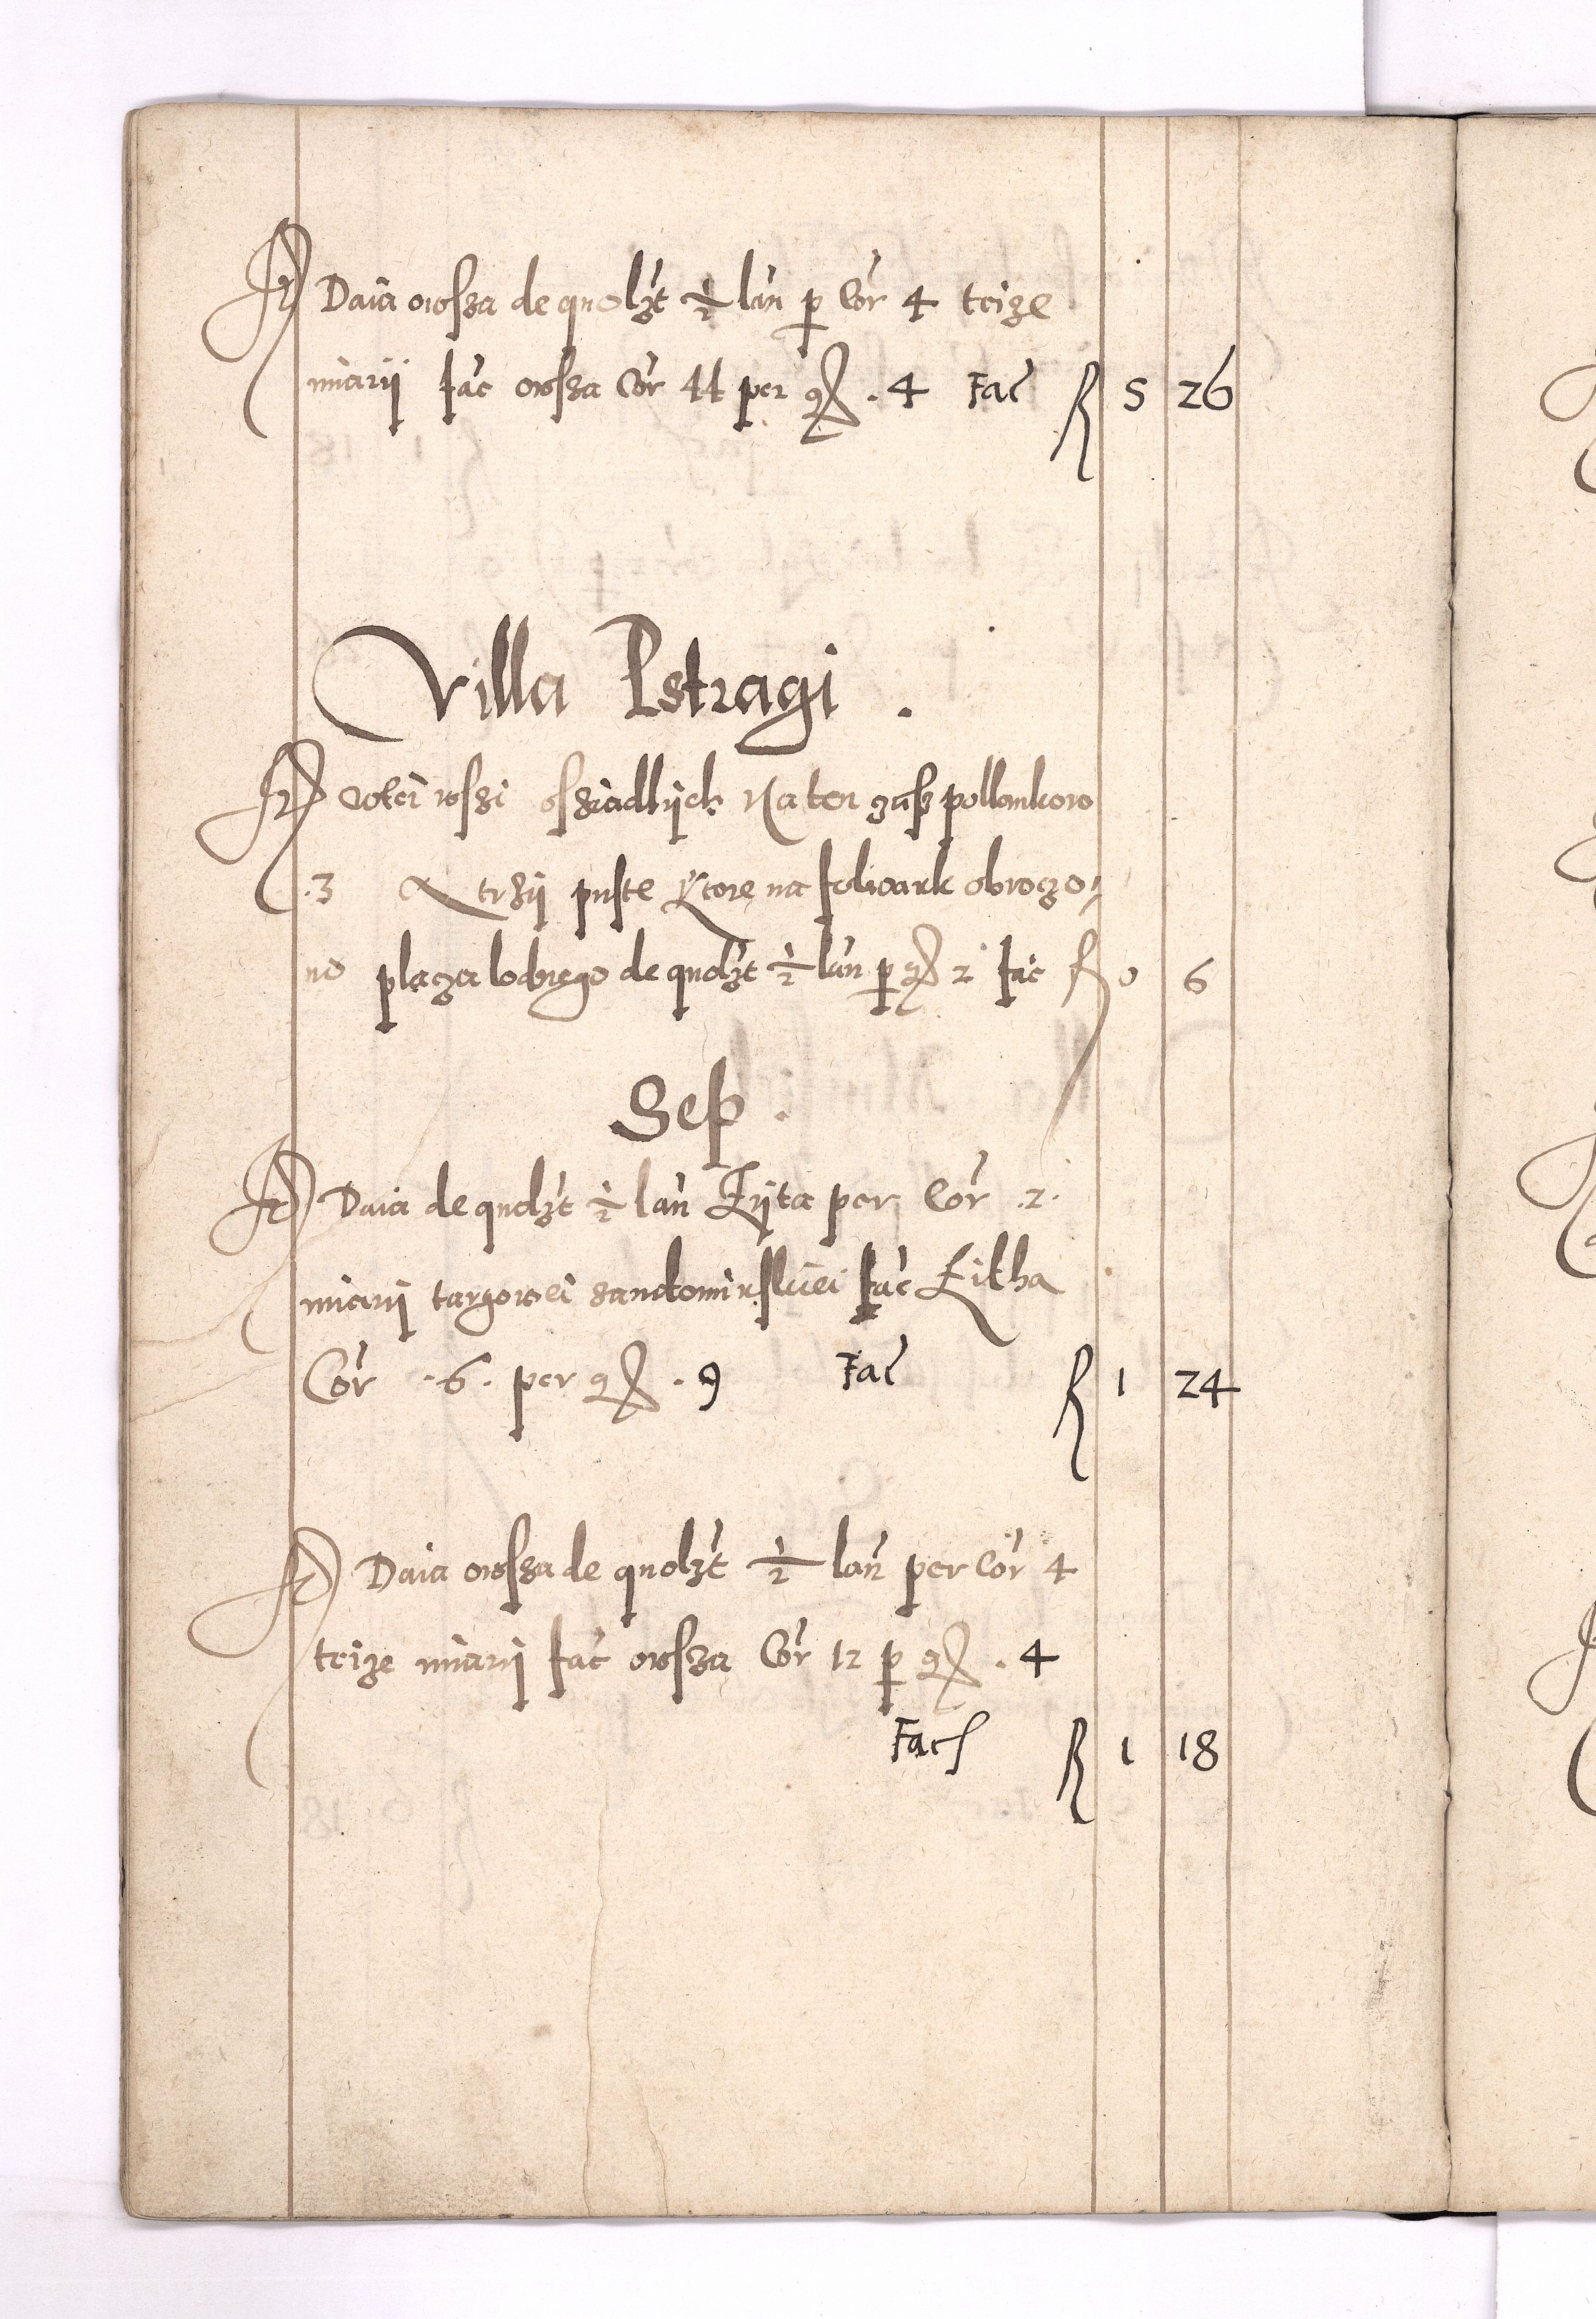 It Daia owsza de quolzt ½ lan p Cor 4 teize
miarij fac owsza Cor 44 per gr . 4 Fac R 5 26
Villa Pstragi .
It wtei wszi osziadlijch na ten czasz pollankow
.3 A trzij puste ktore na folwark obroczo
no placza lodnego de quolzt ½ lan p gr 2 fac R 0 6
Sep .
It Daia de quolzt ½ lan Zijta per Cor .2.
miarij targowei sandomirskiei fac Zitha
Cor .6. per gr . 9 Fac R 1 24
It Daia owsza de quolzt ½ lan per Cor 4
teize miarij fac owsza Cor 12 p gr . 4
Fac R 1 18